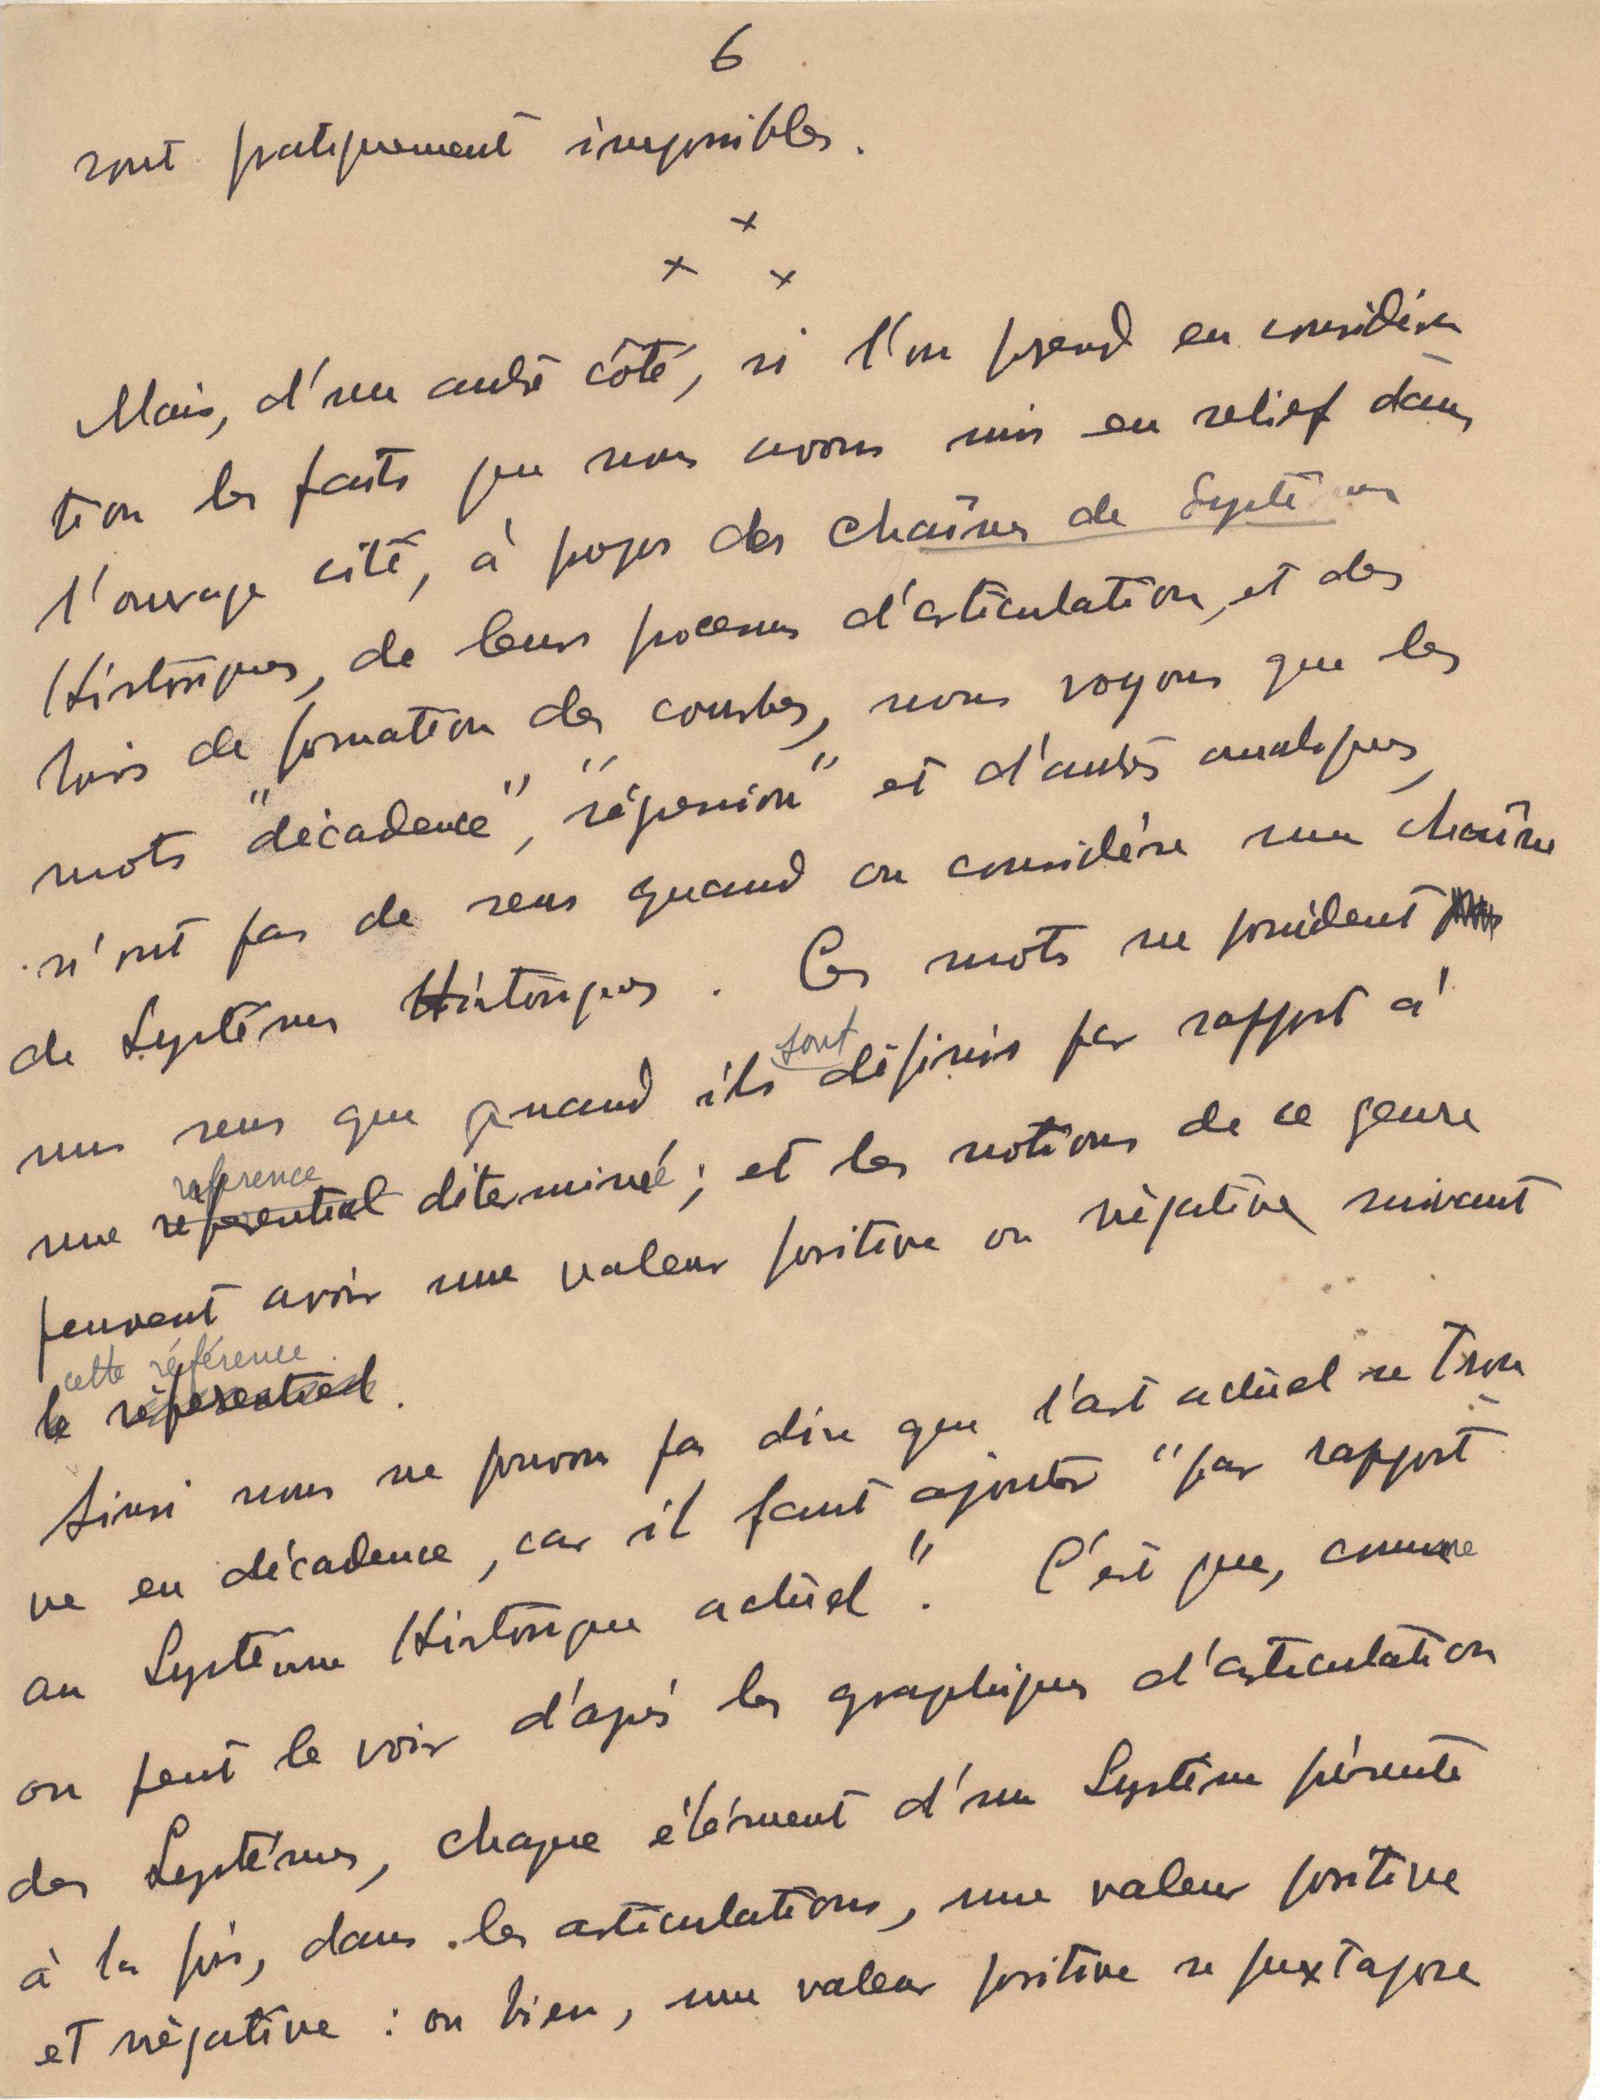 6
sont pratiquement impossibles.
x
x x
Mais, d'un autre côté, si l'on prend en considéra
tion les faits que nous avons mis en relief dans
l'ouvrage cité, à propos des chaînes de Systèmes
Historiques, de leurs processus d'articulation, et des
lois de formation des courbes, nous voyons que les
mots "décadence", "régression" et d'autres analogues,
n'ont pas de sens quand on considère une chaîne
de Systèmes Historiques. Ces mots ne possèdent
un sens que quand ils sont définis par rapport à
reference
une réferentiel déterminée; et les notions de ce genre
peuvent avoir une valeur positive ou négative suivant
cette référence
le référentiel.
Ainsi nous ne pouvons pas dire que l'art actuel se trou
ve en décadence, car il faut ajouter "par rapport
au Système Historique actuel". C'est que, comme
on peut le voir d'après les graphiques d'articulation
des Systèmes, chaque élément d'un Système présente
à la fois, dans les articulations, une valeur positive
et négative : ou bien, une valeur positive se juxtapose